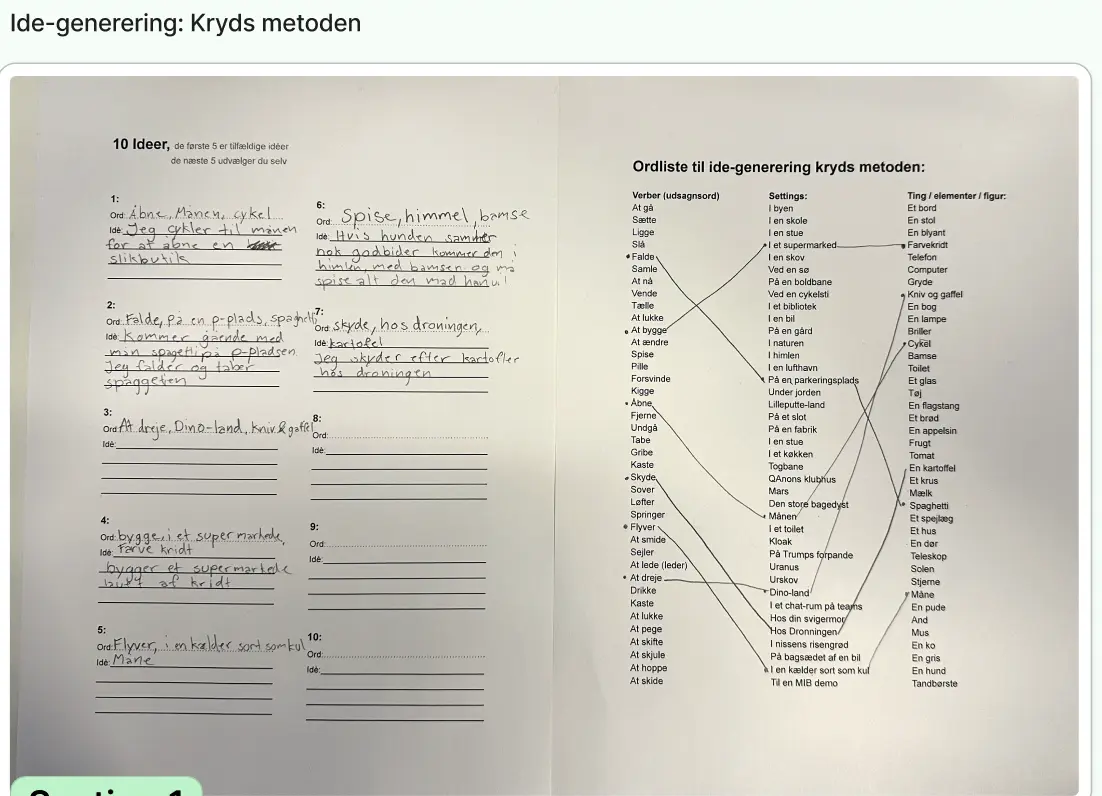 Ide-generering: Kryds metoden
10 Ideer, de første 5 er tilfældige idéer
de næste 5 udvælger du selv
1:
Ord: Åbne, Månen, cykel
Idé: Jeg cykler til månen
for at åbne en
slikbutik
2:
Ord: Falde, på en p-plads, spaghetti
Idé: Kommer gående med
man spagetti på p-pladsen
Jeg falder og taber
spaggetien
3:
Ord: At dreje, Dino-land, kniv & gaffel
Idé:
4:
Ord: bygge, i et super markede,
Idé: Farve kridt
bygger et supermarkede
lavet af kridt
5:
Ord: Flyver, i en kælder sort som kul
Idé: Måne
6:
Ord: Spise, himmel, bamse
Idé: Hvis hunden samler
nok godbider kommer den i
himlen, med bamsen og må
spise alt den mad han vil
7:
Ord: skyde, hos droningen,
Idé: kartofel
Jeg skyder efter kartofler
hos droningen
8:
Ord:
Idé:
9:
Ord:
Idé:
10:
Ord:
Idé:
Ordliste til ide-generering kryds metoden:
Verber (udsagnsord)
At gå
Sætte
Ligge
Slå
Falde
Samle
At nå
Vende
Tælle
At lukke
At bygge
At ændre
Spise
Pille
Forsvinde
Kigge
Åbne
Fjerne
Undgå
Tabe
Gribe
Kaste
Skyde
Sover
Løfter
Springer
Flyver
At smide
Sejler
At lede (leder)
At dreje
Drikke
Kaste
At lukke
At pege
At skifte
At skjule
At hoppe
At skide
Settings:
I byen
I en skole
I en stue
I et supermarked
I en skov
Ved en sø
På en boldbane
Ved en cykelsti
I et bibliotek
I en bil
På en gård
I naturen
I himlen
I en lufthavn
På en parkeringsplads
Under jorden
Lilleputte-land
På et slot
På en fabrik
I en stue
I et køkken
Togbane
QAnons klubhus
Mars
Den store bagedyst
Månen
I et toilet
Kloak
På Trumps forpande
Uranus
Urskov
Dino-land
I et chat-rum på teams
Hos din svigermor
Hos Dronningen
I nissens risengrød
På bagsædet af en bil
I en kælder sort som kul
Til en MIB demo
Ting / elementer / figur:
Et bord
En stol
En blyant
Farvekridt
Telefon
Computer
Gryde
Kniv og gaffel
En bog
En lampe
Briller
Cykel
Bamse
Toilet
Et glas
Tøj
En flagstang
Et brød
En appelsin
Frugt
Tomat
En kartoffel
Et krus
Mælk
Spaghetti
Et spejlæg
Et hus
En dør
Teleskop
Solen
Stjerne
Måne
En pude
And
Mus
En ko
En gris
En hund
Tandbørste